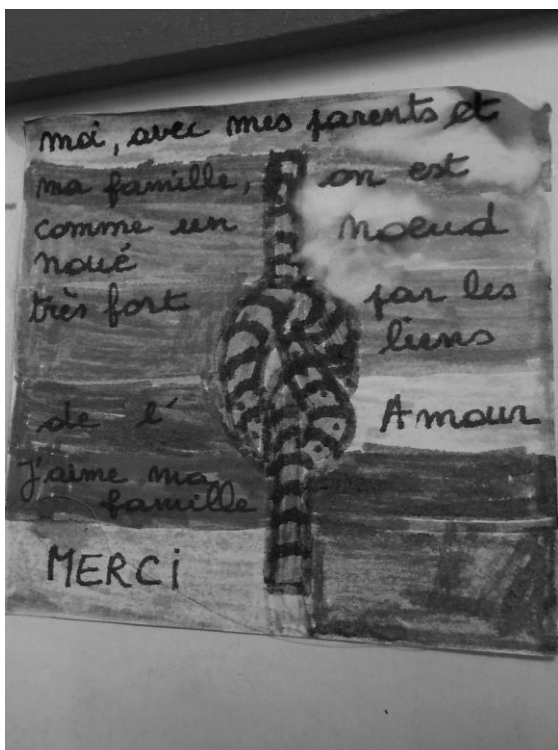 moi, avec mes parents et
ma famille, on est
comme un noeud
noué
très fort par les
liens
de l' Amour
J'aime ma
famille
MERCi